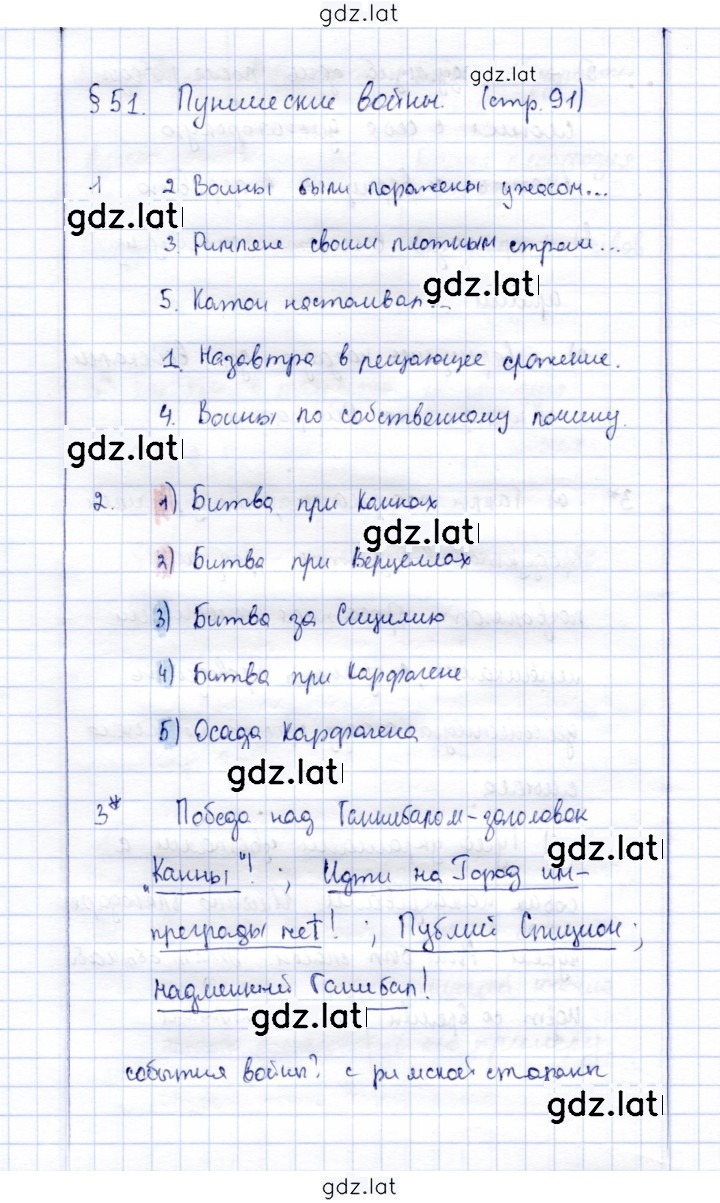 gdz.lat
gdz.lat
§ 51. Пунические войны. (стр. 91)
1 2. Воины были поражены ужасом...
gdz.lat
3. Римляне своим плотным строем...
gdz.lat
5. Катон настаивал...
1. Назавтра в решающее сражение.
4. Воины по собственному почину.
gdz.lat
2. 1) Битва при Каннах
gdz.lat
2) Битва при Верцеллах
3) Битва за Сицилию
4) Битва при Карфагене
5) Осада Карфагена
gdz.lat
3* Победа над Ганнибалом - заголовок
gdz.lat
"Канны"! ; Идти на Город им-
преграды нет! ; Публий Сципион ;
надмекний Ганибал!
gdz.lat
события войны? с римской стороны
gdz.lat
gdz.lat